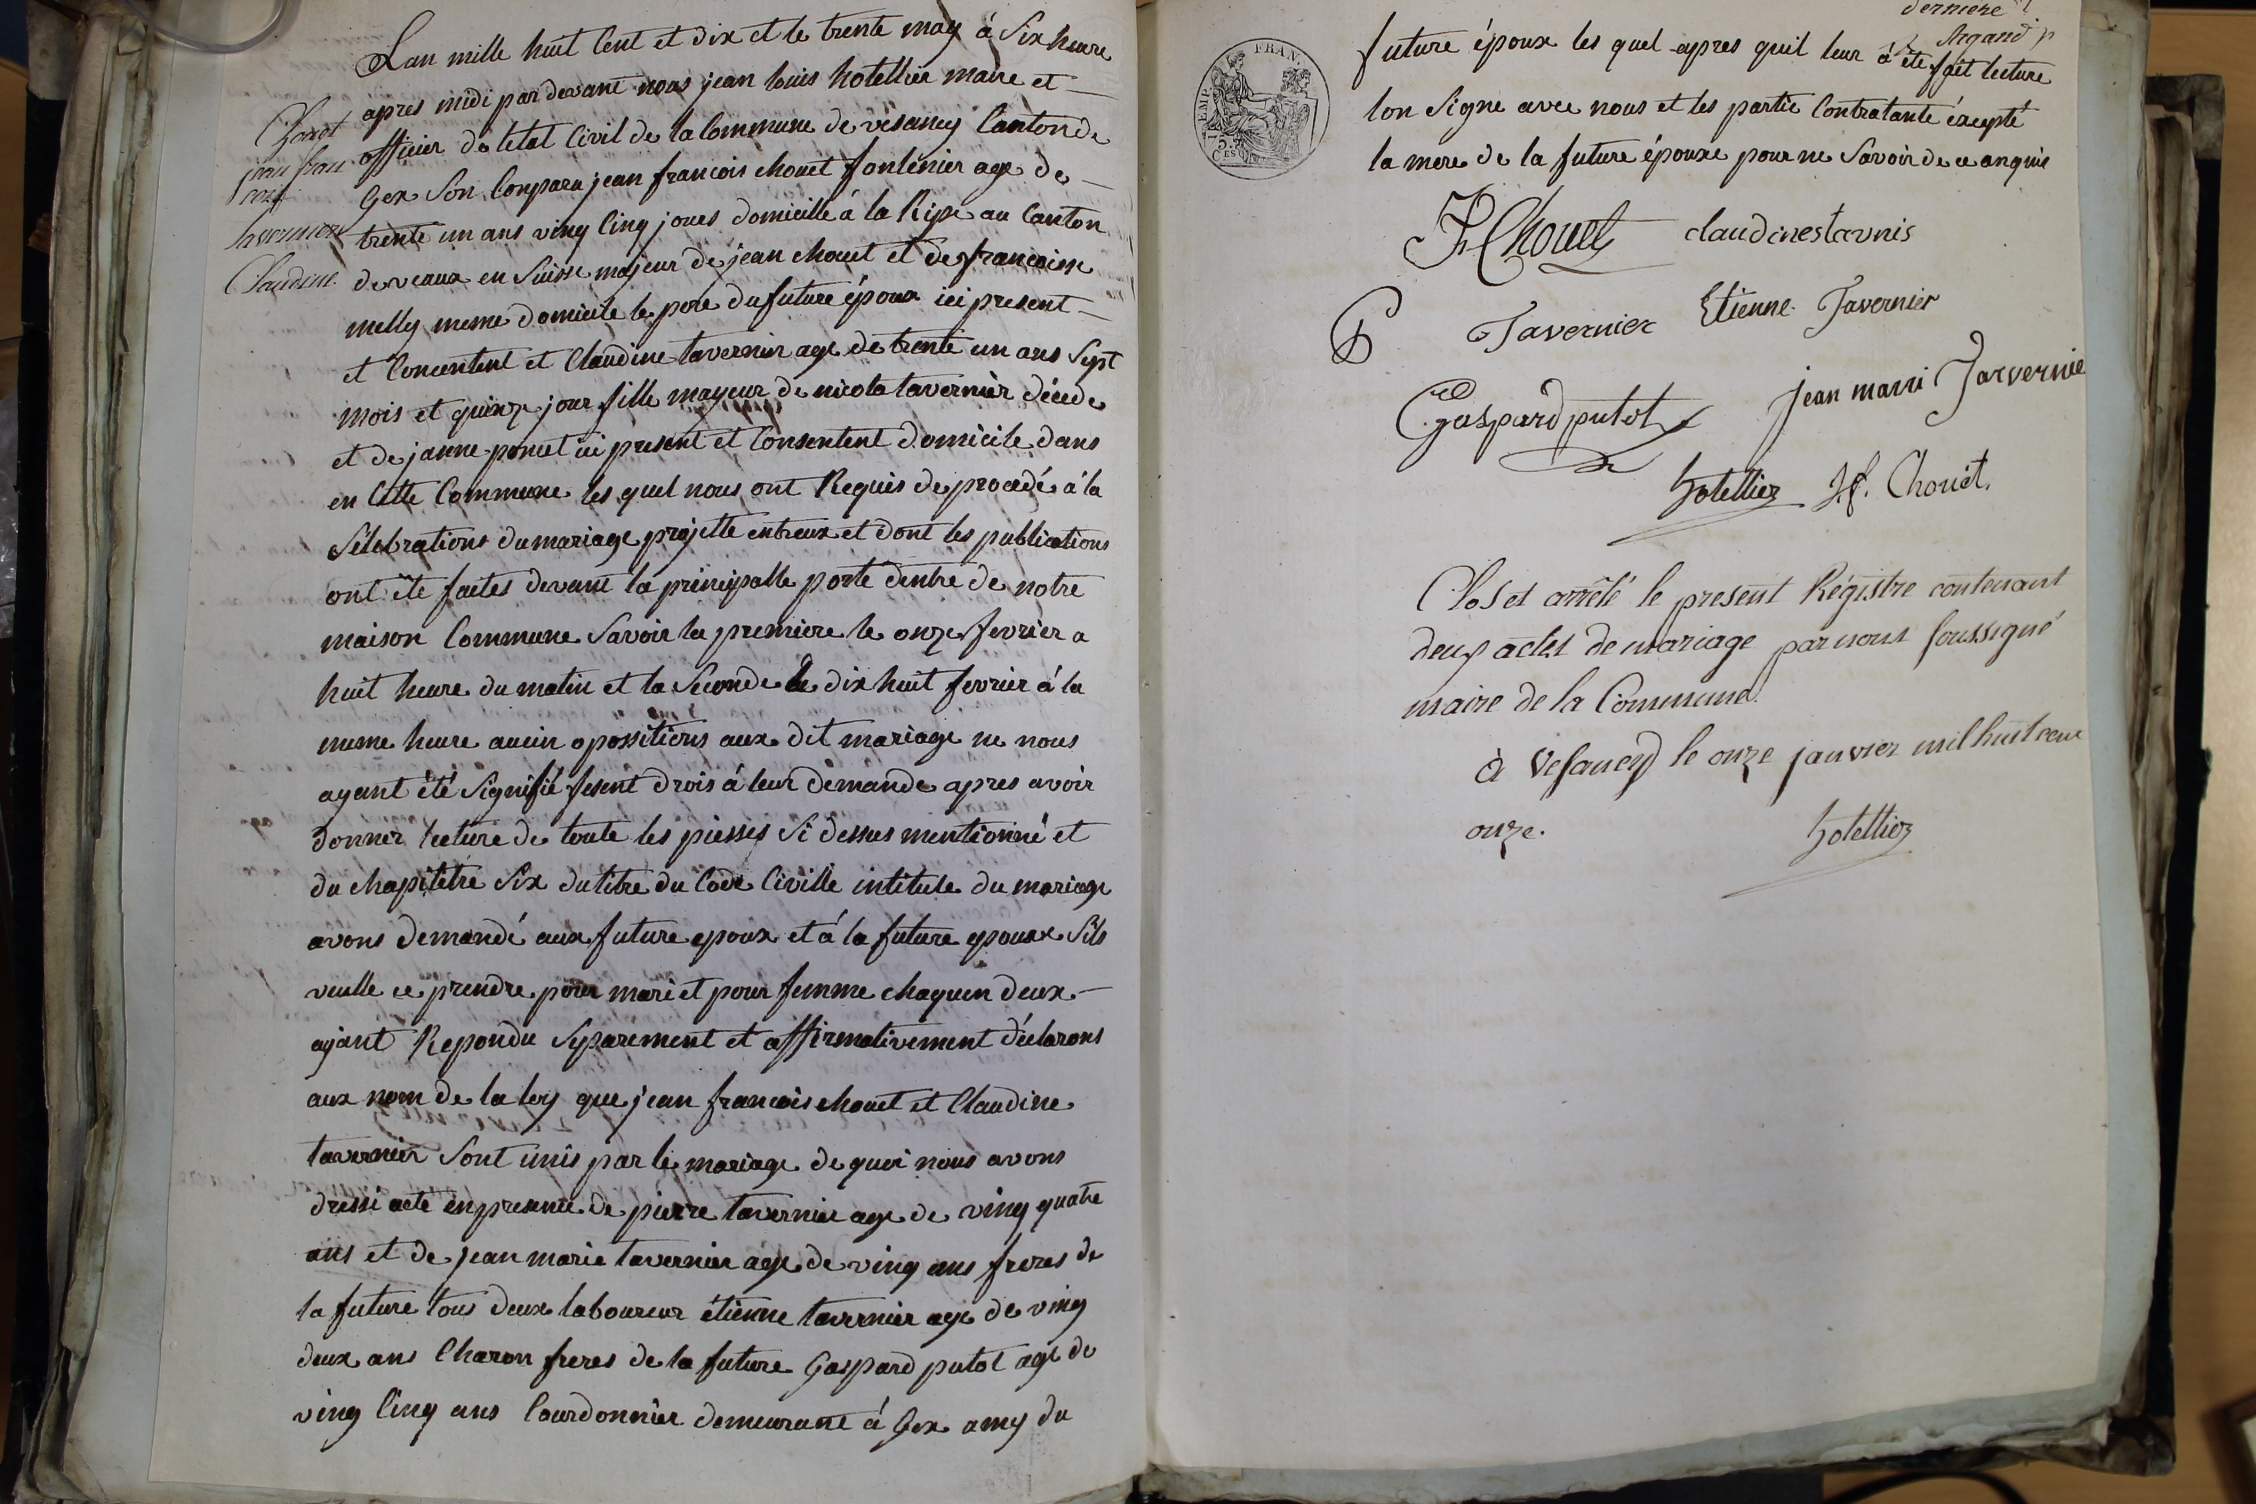 Lan mille huit Cent et dix et le trente may á Six heure
apres midi par devant nous jean louis hotellier maire et
officier de letat Civil de la Commune de vésancy Canton de
Gex Son Conparu jean francois chouet fontenier age de
trente un ans ving Cinq jours domicille á la Ripe au Canton
de veaux en Suisse majeur de jean chouet et de francoise
melly meme domicile le pere du future époux ici present
et Concentent et Claudine tavernier age de trente un ans Sept
mois et quinze jour fille mayeur de nicola tavernier décede
et de janne poncet ici present et Consentent domicile dans
en Cette Commune les quel nous ont Requis de procedé á la
Sélebrations du mariage projette entreux et dont les publications
ont ête faites devant la principalle porte dentre de notre
maison Commune Savoir la premiere le onze fevrier a
huit heure du matin et la Seconde le dix huit fevrier á la
meme heure aucun opossitions aux dit mariage ne nous
ayant été Signifié fesent drois á leur demande apres avoir
donner lecture de toute les piesses Si dessus mentionné et
du chapitetre Six du titre du Code Civille intitule du mariage
avons demandé aux future epoux et á la future epouxe Sils
veulle ce prendre pour mari et pour femme chaquen deux
ayant Repondu Separement et affirmativement déclarons
aux nom de la loy que jean francois chouet et Claudine
tavernier Sont unis par le mariage de quoi nous avons
dressé acte en presence de pierre tavernier age de ving quatre
ans et de jean marie tavernier age de ving ans freres de
la future tous deux laboureur étienne tavernier age de ving
deux ans Charon freres de la future Gaspard putot age de
ving Cinq ans Courdonnier demeurant á Gex amy du
Chouet
jean fran
cois
tavernier
Claudine
derniere
Argand p
future époux les quel apres quil leur á éte fait lecture
lon Signe avec nous et les partie Contratante éxcepté
la mere de la future épouxe pour ne Savoir de ce anquis
EMP. FRAN.
Chouet claudinestavnis
P Tavernier Etienne Tavernier
Gaspard putot jean marri Tarvernie
hotellier J.f. Chouet.
Clos et arrêté le present Régistre contenant
deux actes de mariage par nous soussigné
maire de la Commune.
à Vesancy le onze janvier mil huit cent
onze. hotellier